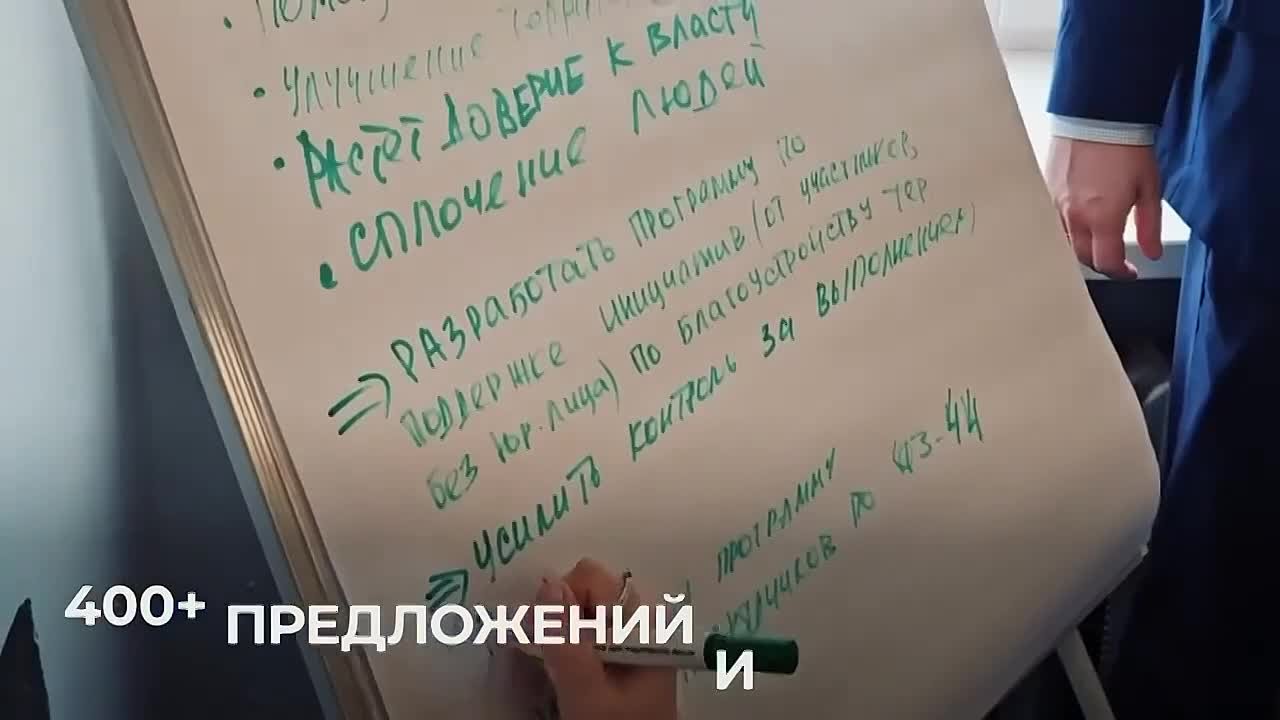 • УЛУЧШЕНИЕ
• РАСТЕТ ДОВЕРИЕ К ВЛАСТИ
• СПЛОЧЕНИЕ ЛЮДЕЙ
⇒ РАЗРАБОТАТЬ ПРОГРАММУ ПО
ПОДДЕРЖКЕ ИНИЦИАТИВ (ОТ УЧАСТНИКОВ,
БЕЗ ЮР. ЛИЦА) ПО БЛАГОУСТРОЙСТВУ ТЕР
⇒ УСИЛИТЬ КОНТРОЛЬ ЗА ВЫПОЛНЕНИЕМ
ПРОГРАММУ
ПО ФЗ-44
400+ ПРЕДЛОЖЕНИЙ
И